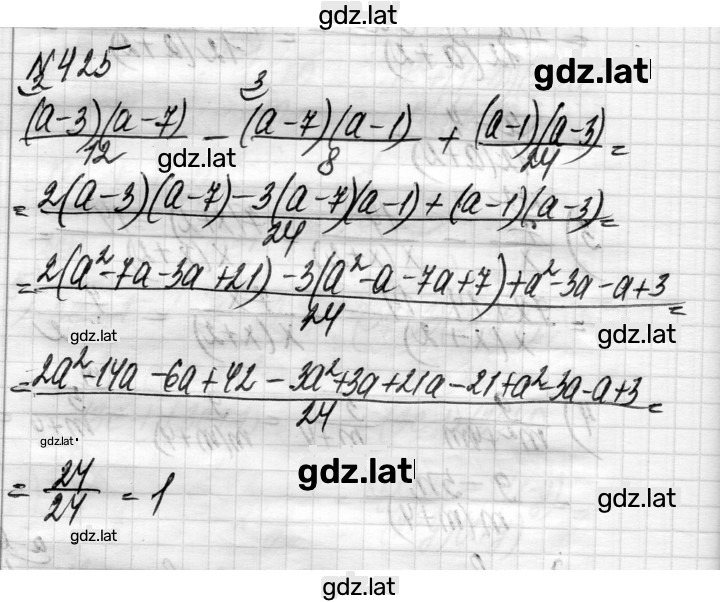 gdz.lat
№425
gdz.lat
2 3
(a-3)(a-7)/12 - (a-7)(a-1)/8 + (a-1)(a-3)/24 =
gdz.lat
= 2(a-3)(a-7)-3(a-7)(a-1)+(a-1)(a-3)/24 =
= 2(a²-7a-3a+21)-3(a²-a-7a+7)+a²-3a-a+3/24 =
gdz.lat gdz.lat
= 2a²-14a-6a+42-3a²+3a+21a-21+a²-3a-a+3/24 =
gdz.lat
= 24/24 = 1
gdz.lat gdz.lat
gdz.lat
gdz.lat